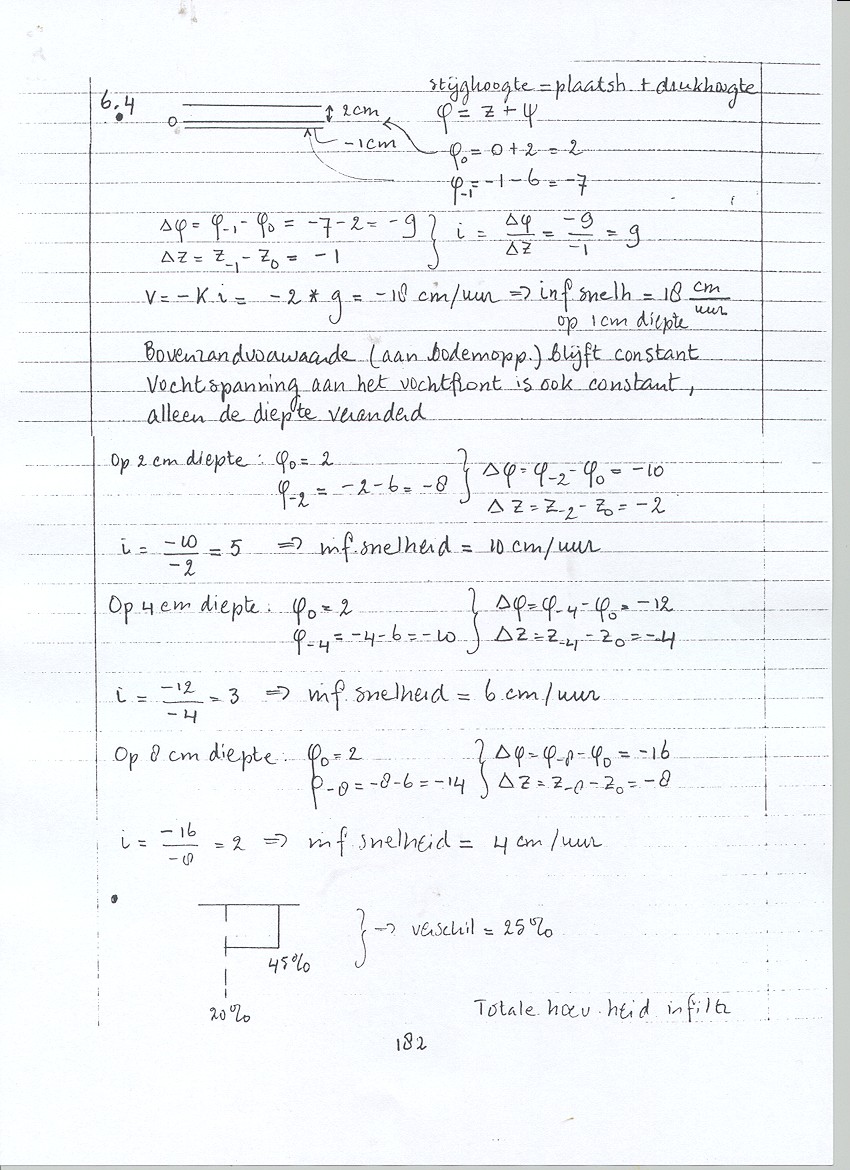 6.4
stijghoogte = plaatsh. + drukhoogte
0
2cm
-1cm
φ = z + ψ
φ₀ = 0 + 2 = 2
φ₋₁ = -1 - 6 = -7
Δφ = φ₋₁ - φ₀ = -7 - 2 = -9 } i = Δφ/Δz = -9/-1 = 9
Δz = z₋₁ - z₀ = -1
v = -K i = -2 * 9 = -18 cm/uur ⇒ inf snelh = 18 cm/uur
op 1cm diepte
Bovenrandvoorwaarde (aan bodemopp.) blijft constant
Vochtspanning aan het vochtfront is ook constant,
alleen de diepte veranderd
Op 2 cm diepte : φ₀ = 2 } Δφ = φ₋₂ - φ₀ = -10
φ₋₂ = -2 - 6 = -8 Δz = z₋₂ - z₀ = -2
i = -10/-2 = 5 ⇒ inf. snelheid = 10 cm/uur
Op 4 cm diepte : φ₀ = 2 } Δφ = φ₋₄ - φ₀ = -12
φ₋₄ = -4 - 6 = -10 Δz = z₋₄ - z₀ = -4
i = -12/-4 = 3 ⇒ inf. snelheid = 6 cm/uur
Op 8 cm diepte : φ₀ = 2 } Δφ = φ₋₈ - φ₀ = -16
φ₋₈ = -8 - 6 = -14 Δz = z₋₈ - z₀ = -8
i = -16/-8 = 2 ⇒ inf snelheid = 4 cm/uur
} → verschil = 25%
45%
20%
Totale hoev. heid infiltr
182